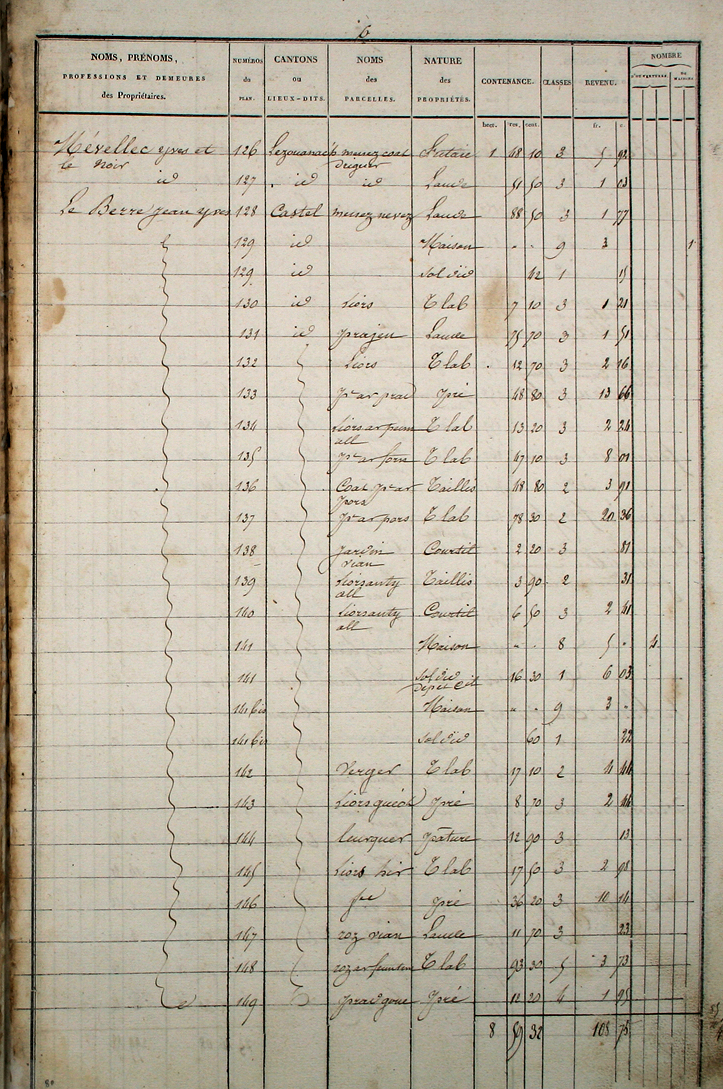 6
NOMS, PRÉNOMS, PROFESSIONS ET DEMEURES des Propriétaires. NUMÉROS du PLAN. CANTONS ou LIEUX-DITS. NOMS des PARCELLES. NATURE des PROPRIÉTÉS. CONTENANCE. CLASSES. REVENU. NOMBRE
hect. ares. cent. fr. c.
Mévellec yves et 126 menez coat 1 48 10 3 5 92
le Noir
id 127 id id Lande 51 50 3 1 03
Le Berre jean yves 128 Castel menez nevez Lande 88 50 3 1 77
129 id Maison " " 9 3 1
129 id sol id 42 1 15
130 id liors T lab 7 10 3 1 21
131 id prajen Lande 75 70 3 1 51
132 liors T lab 12 70 3 2 16
133 pc ar prad pré 48 80 3 13 66
134 liors ar T lab 13 20 3 2 24
all
135 pc ar forn T lab 47 10 3 8 01
136 Coat pc ar Taillis 48 80 2 3 91
pors
137 pc ar pors T lab 78 30 2 20 36
138 jardin Courtil 2 20 3 81
vian
139 liorsanty Taillis 3 90 2 31
all
140 liorsanty Courtil 6 50 3 2 41
all
141 Maison " " 8 5 " 4
141 sol id 16 30 1 6 03
141 bis Maison " " 9 3 "
141 bis sol id 60 1 22
142 Verger T lab 17 10 2 4 44
143 pré 8 70 3 2 44
144 leurguer pature 12 90 3 13
145 liors hir T lab 17 50 3 2 98
146 pré 36 20 3 10 14
147 roz vian Lande 11 70 3 23
148 roz ar feunteun T lab 93 30 5 3 73
149 prad goue pré 12 20 4 1 95
8 59 32 108 75